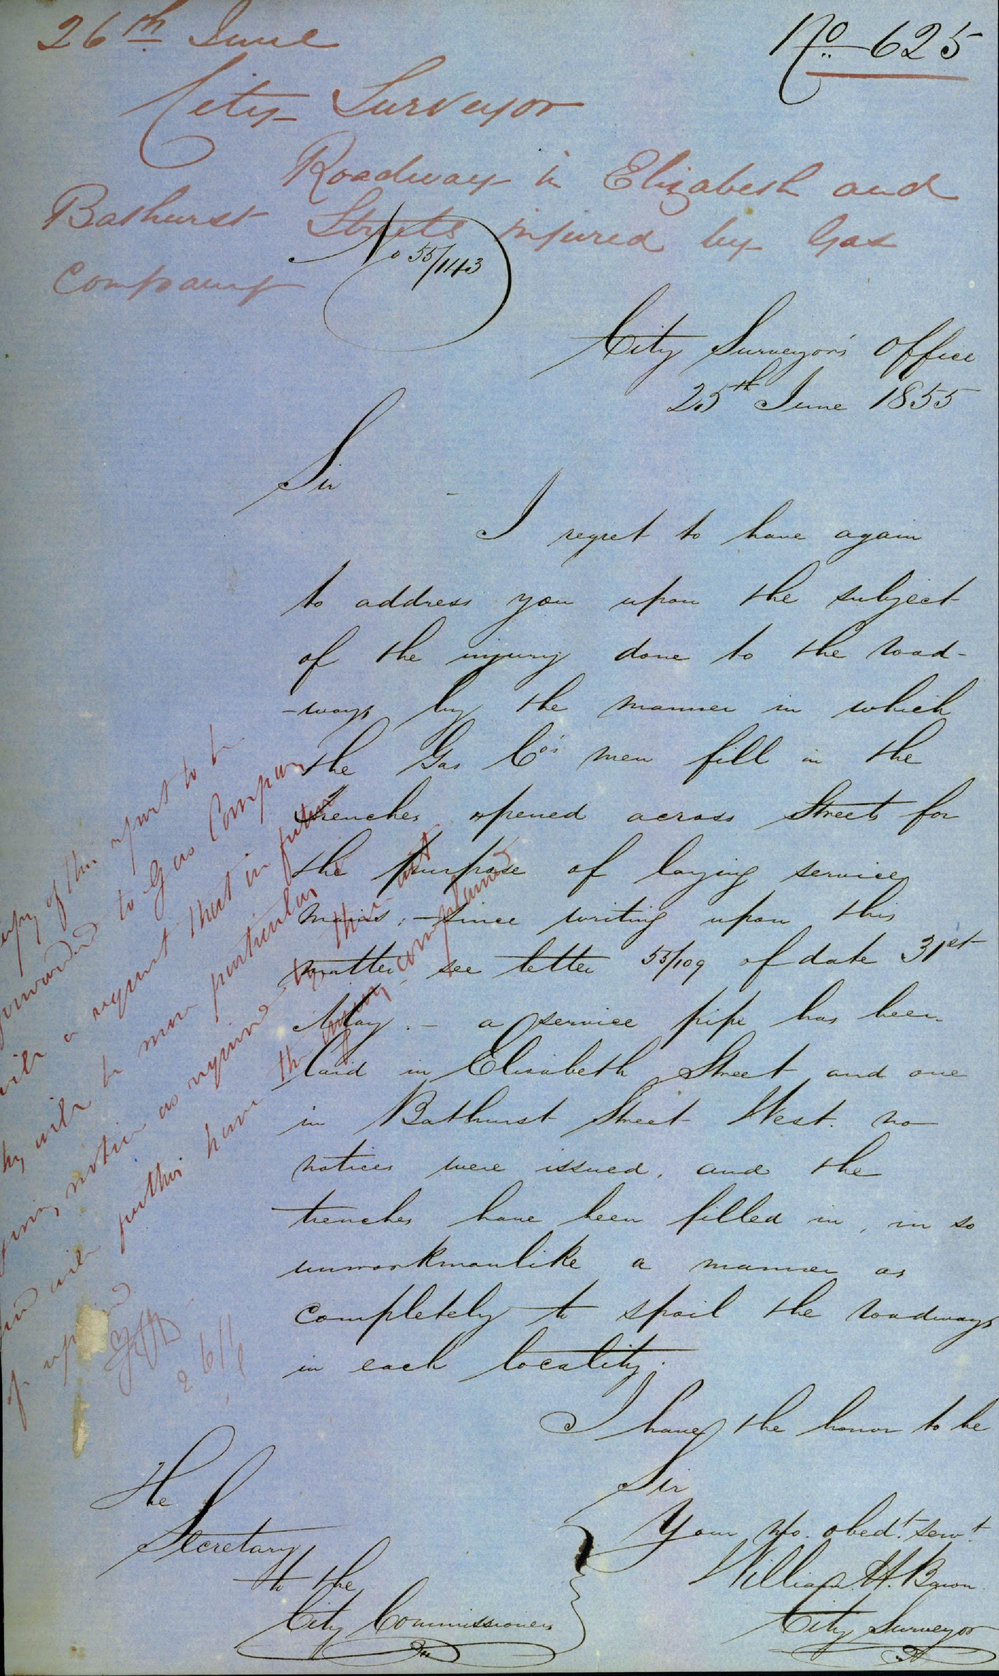 26th June
No. 625
City Surveyor
Roadway in Elizabeth and
Bathurst Streets injured by Gas
Company
No 55/143
City Surveyor's Office
25th June 1855
Sir
I regret to have again
to address you upon the subject
of the injury done to the road-
-ways by the manner in which
the Gas Co's men fill in the
trenches opened across Streets for
the purpose of laying service
mains; - since writing upon this
matter see letter 55/109 of date 31st
May. - a service pipe has been
laid in Elizabeth Street and one
in Bathurst Street West. no
notices were issued, and the
trenches have been filled in, in so
unworkmanlike a manner as
completely to spoil the roadways
in each locality.
I have the honor to be
Sir
Your Mo. obedt. servt
William H. Baron
City Surveyor
The
Secretary
to the
City Commissioners
copy of this report to be
forwarded to Gas Company
with a request that in future
they will be more particular in
giving notice as required by their act
and will further have the injury complained
of repaired
26/6